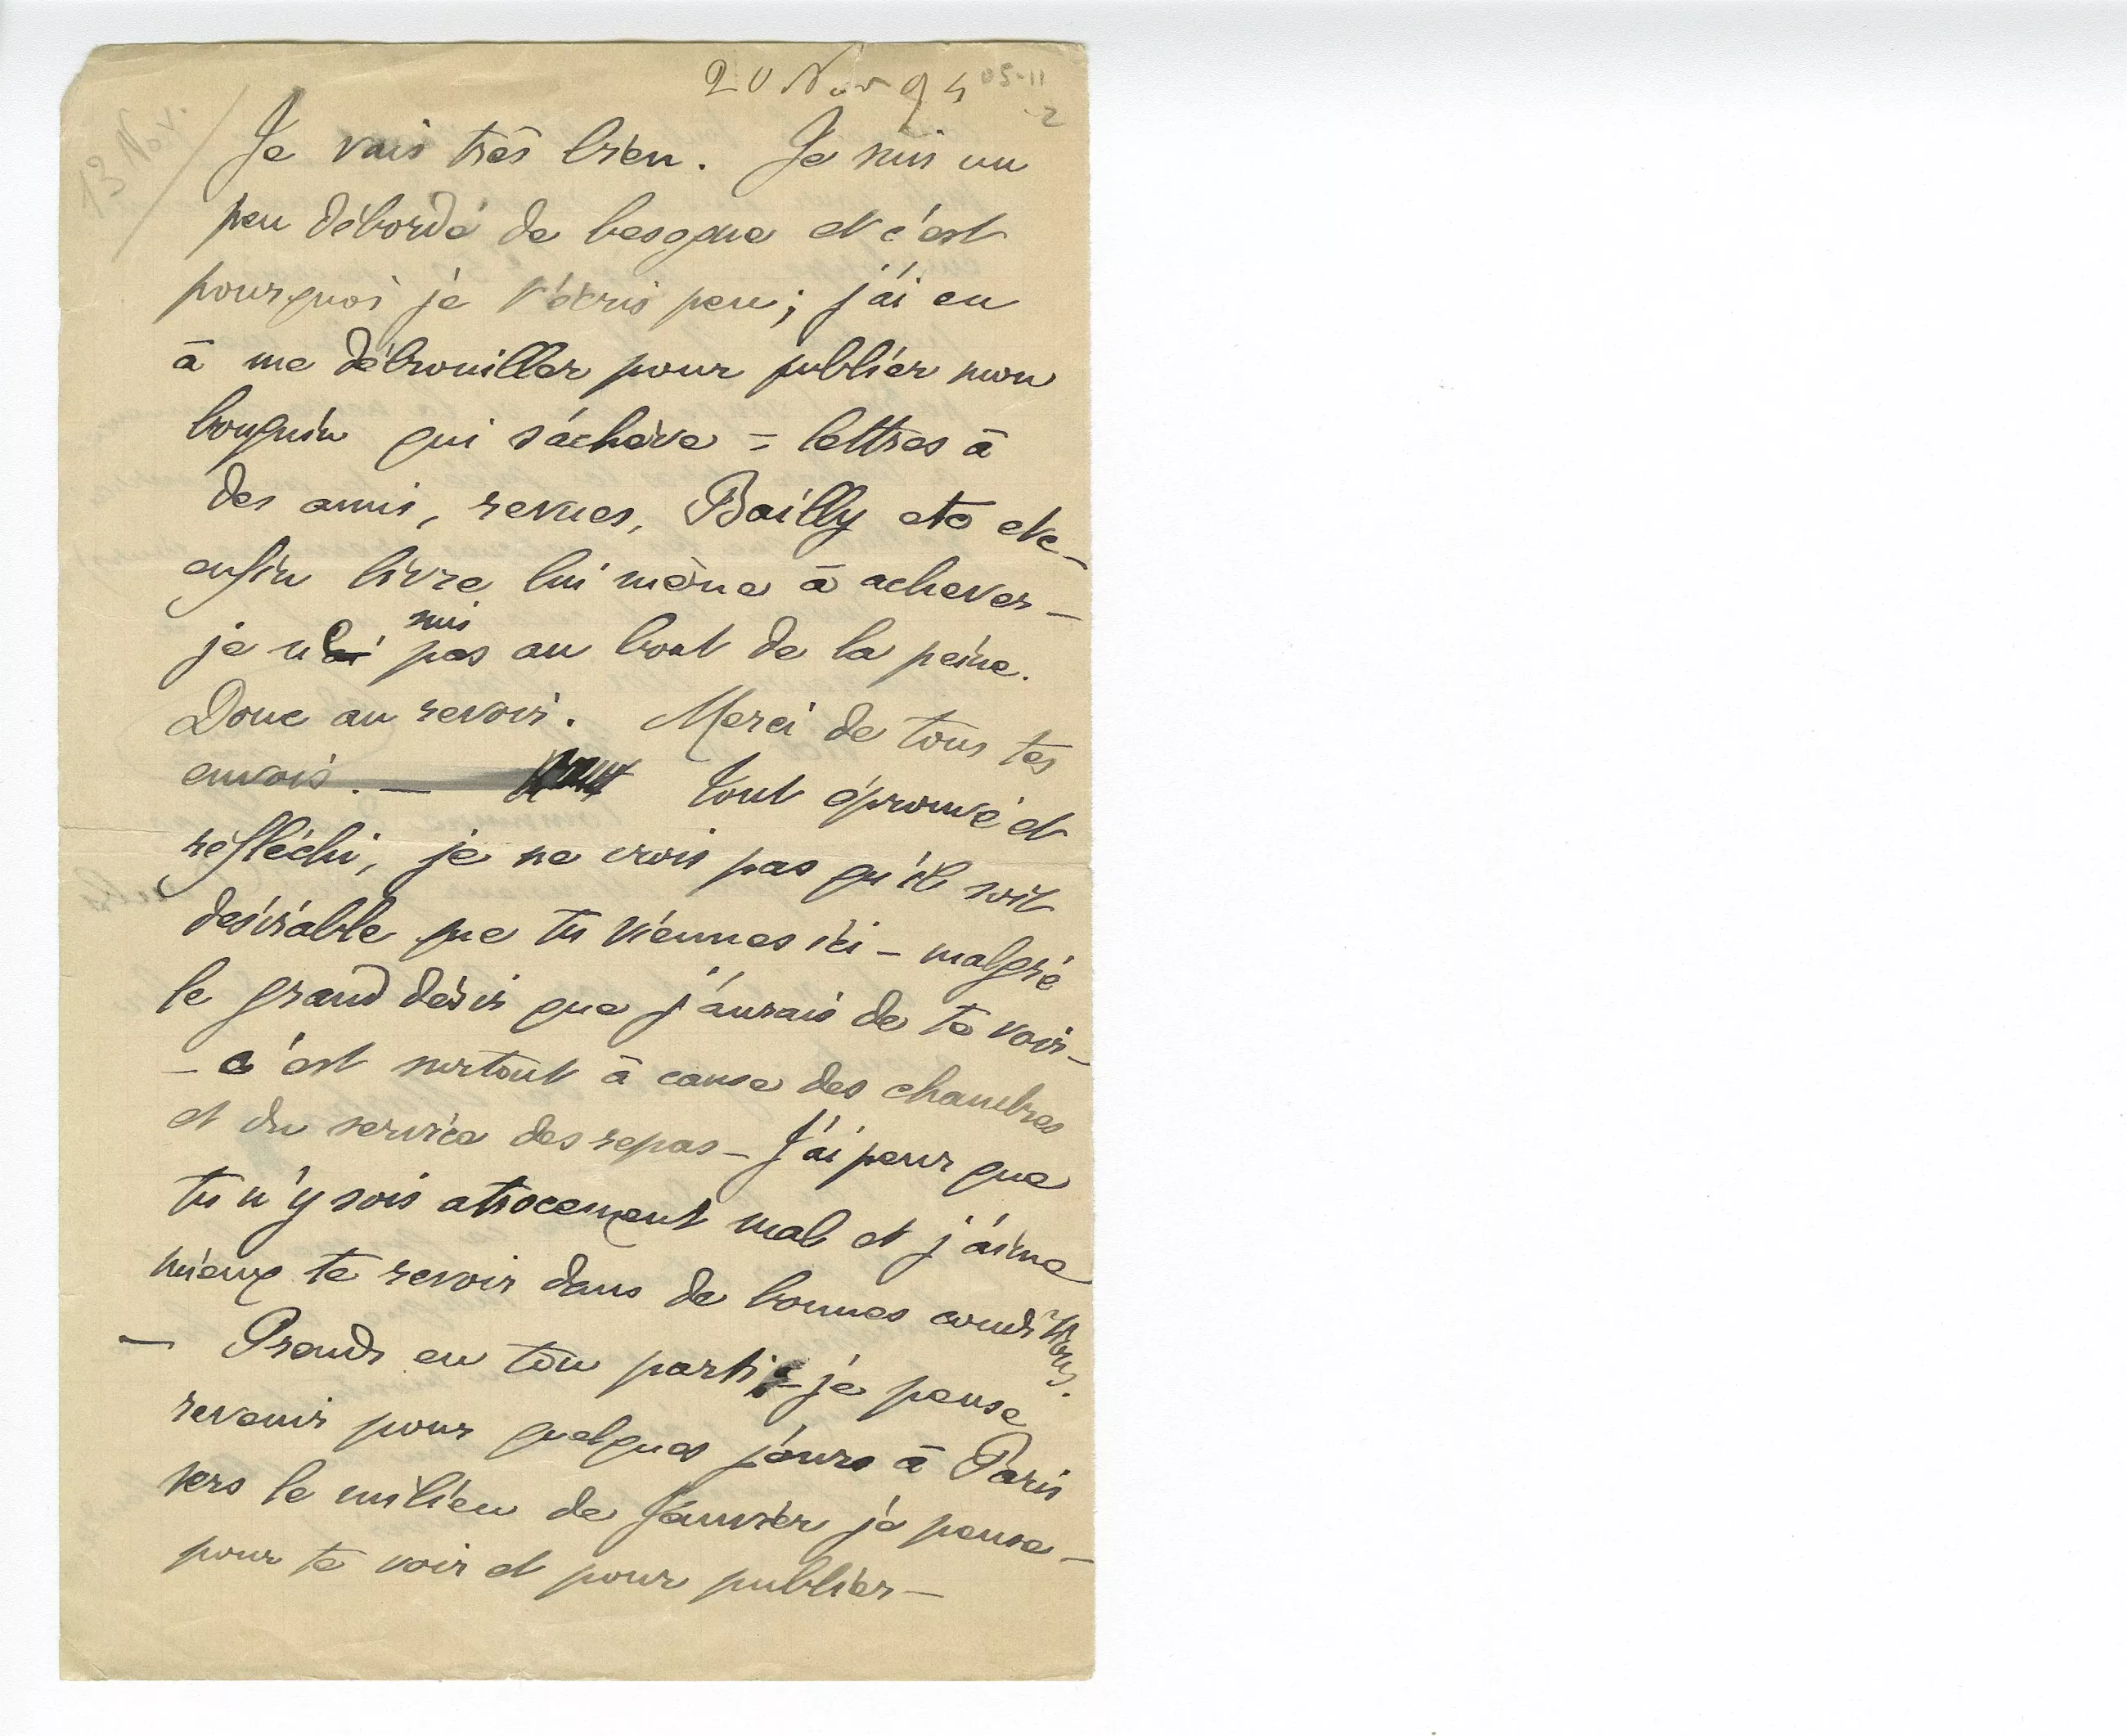 20 Nov 94
05-11
-2
13 Nov.
Je vais très bien. Je suis un
peu débordé de besogne et c'est
pourquoi je t'écris peu ; j'ai eu
à me débrouiller pour publier mon
bouquin qui s'achève = lettres à
des amis, revues, Bailly etc etc –
enfin livre lui même à achever –
je ne suis pas au bout de la peine.
Donc au revoir. Merci de tous tes
envois. – Tout éprouvé et
réfléchi, je ne crois pas qu'il soit
désirable que tu viennes ici – malgré
le grand désir que j'aurais de te voir –
– c'est surtout à cause des chambres
et du service des repas – J'ai peur que
tu n'y sois atrocement mal et j'aime
mieux te revoir dans de bonnes conditions.
– Prends en ton parti – je pense
revenir pour quelques jours à Paris
vers le milieu de Janvier je pense –
pour te voir et pour publier –